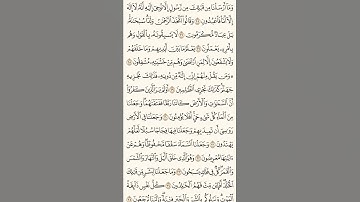 وَمَآ أَرْسَلْنَا مِن قَبْلِكَ مِن رَّسُولٍ إِلَّا نُوحِىٓ إِلَيْهِ أَنَّهُۥ لَآ إِلَٰهَ
إِلَّآ أَنَا۠ فَٱعْبُدُونِ ٢٥ وَقَالُوا۟ ٱتَّخَذَ ٱلرَّحْمَٰنُ وَلَدًا سُبْحَٰنَهُۥ
بَلْ عِبَادٌ مُّكْرَمُونَ ٢٦ لَا يَسْبِقُونَهُۥ بِٱلْقَوْلِ وَهُم
بِأَمْرِهِۦ يَعْمَلُونَ ٢٧ يَعْلَمُ مَا بَيْنَ أَيْدِيهِمْ وَمَا خَلْفَهُمْ
وَلَا يَشْفَعُونَ إِلَّا لِمَنِ ٱرْتَضَىٰ وَهُم مِّنْ خَشْيَتِهِۦ مُشْفِقُونَ ٢٨
۞ وَمَن يَقُلْ مِنْهُمْ إِنِّىٓ إِلَٰهٌ مِّن دُونِهِۦ فَذَٰلِكَ نَجْزِيهِ
جَهَنَّمَ كَذَٰلِكَ نَجْزِى ٱلظَّٰلِمِينَ ٢٩ أَوَلَمْ يَرَ ٱلَّذِينَ كَفَرُوٓا۟
أَنَّ ٱلسَّمَٰوَٰتِ وَٱلْأَرْضَ كَانَتَا رَتْقًا فَفَتَقْنَٰهُمَا وَجَعَلْنَا
مِنَ ٱلْمَآءِ كُلَّ شَىْءٍ حَىٍّ أَفَلَا يُؤْمِنُونَ ٣٠ وَجَعَلْنَا فِى ٱلْأَرْضِ
رَوَٰسِىَ أَن تَمِيدَ بِهِمْ وَجَعَلْنَا فِيهَا فِجَاجًا سُبُلًا لَّعَلَّهُمْ
يَهْتَدُونَ ٣١ وَجَعَلْنَا ٱلسَّمَآءَ سَقْفًا مَّحْفُوظًا وَهُمْ عَنْ
ءَايَٰتِهَا مُعْرِضُونَ ٣٢ وَهُوَ ٱلَّذِى خَلَقَ ٱلَّيْلَ وَٱلنَّهَارَ وَٱلشَّمْسَ
وَٱلْقَمَرَ كُلٌّ فِى فَلَكٍ يَسْبَحُونَ ٣٣ وَمَا جَعَلْنَا لِبَشَرٍ مِّن قَبْلِكَ
ٱلْخُلْدَ أَفَإِي۟ن مِّتَّ فَهُمُ ٱلْخَٰلِدُونَ ٣٤ كُلُّ نَفْسٍ ذَآئِقَةُ
ٱلْمَوْتِ وَنَبْلُوكُم بِٱلشَّرِّ وَٱلْخَيْرِ فِتْنَةً وَإِلَيْنَا تُرْجَعُونَ ٣٥